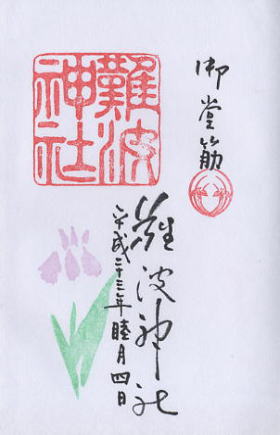 御堂筋
難波神社
難波神社
平成二十三年睦月四日